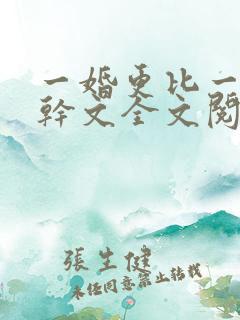 一婚更比一
幹文全文閱
張生健
未經同意禁止轉載